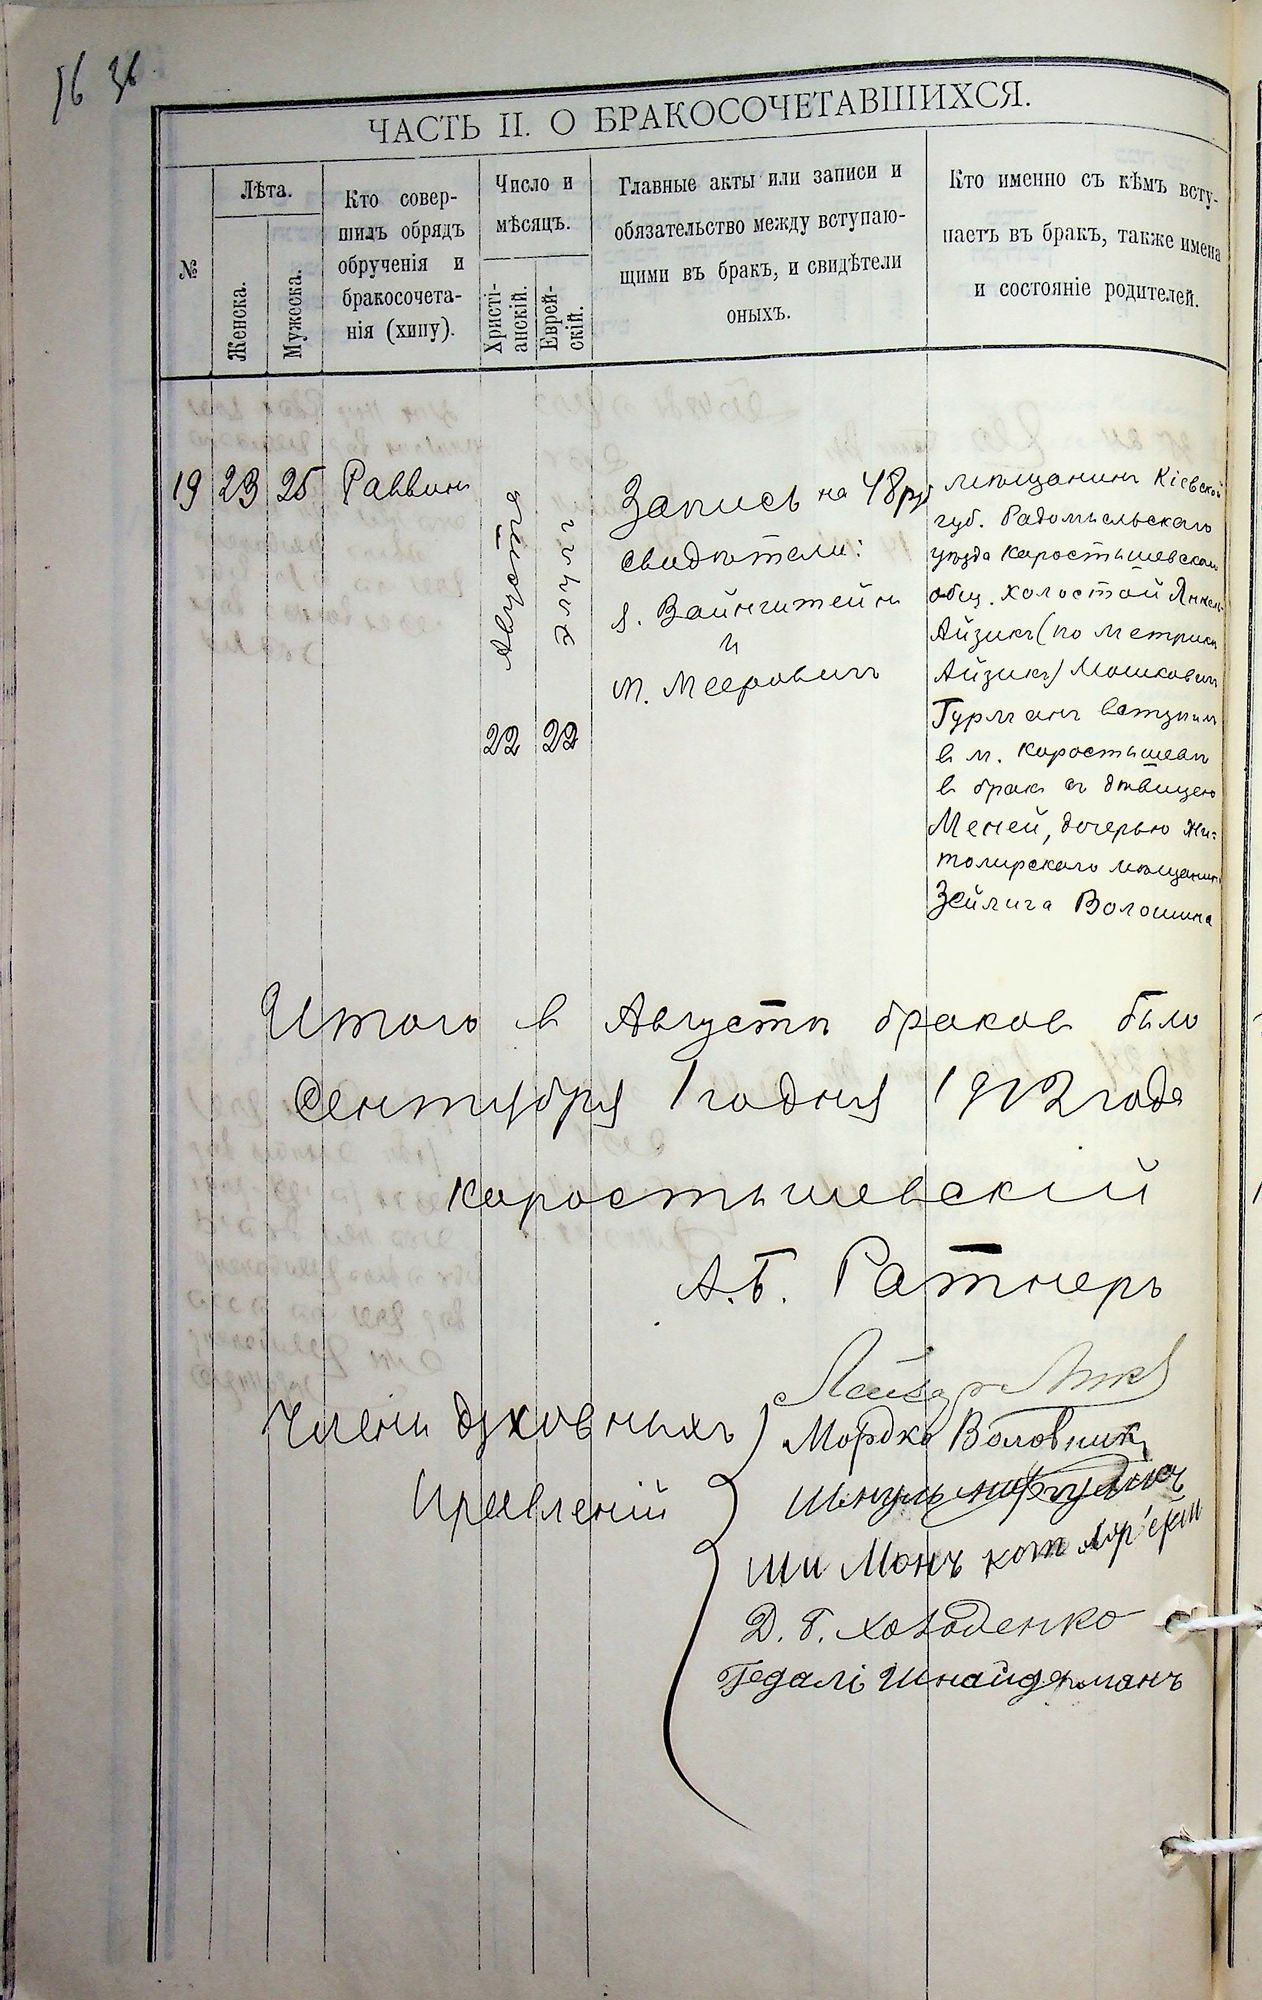 16 36
ЧАСТЬ II. О БРАКОСОЧЕТАВШИХСЯ.
№
Лѣта.
Женска.
Мужеска.
Кто совер-
шилъ обрядъ
обрученія и
бракосочета-
нія (хипу).
Число и
мѣсяцъ.
Христі-
анскій.
Еврей-
скій.
Главные акты или записи и
обязательство между вступаю-
щими въ бракъ, и свидѣтели
оныхъ.
Кто именно съ кѣмъ всту-
паетъ въ бракъ, также имена
и состояніе родителей.
19
23
25
Раввинъ
22 Августа
22 Элулъ
Запись на 48 руб
свидѣтели:
Я. Вайнштейнъ
и
М. Мееровичъ
мѣщанинъ Кіевской
губ. Радомысльскаго
уѣзда Коростышевскаго
общ. холостой Янкель
Айзикъ (по метрикѣ
Айзикъ) Мошковичъ
Гурманъ вступилъ
в м. Коростышевѣ
в бракъ съ дѣвицею
Меней, дочерью Жи=
томирскаго мѣщанина
Зейлига Волошина
Итого в Августѣ браков было
Сентября 1 годня 1912 года
Коростышевскій
А. Б. Ратнеръ
Члены духовныхъ
Правленій
Лейзер
Мордко Воловник
Шмуль
Ши Монъ кот
Д. Г. Хододенко
Гедалі Шнайдерманъ